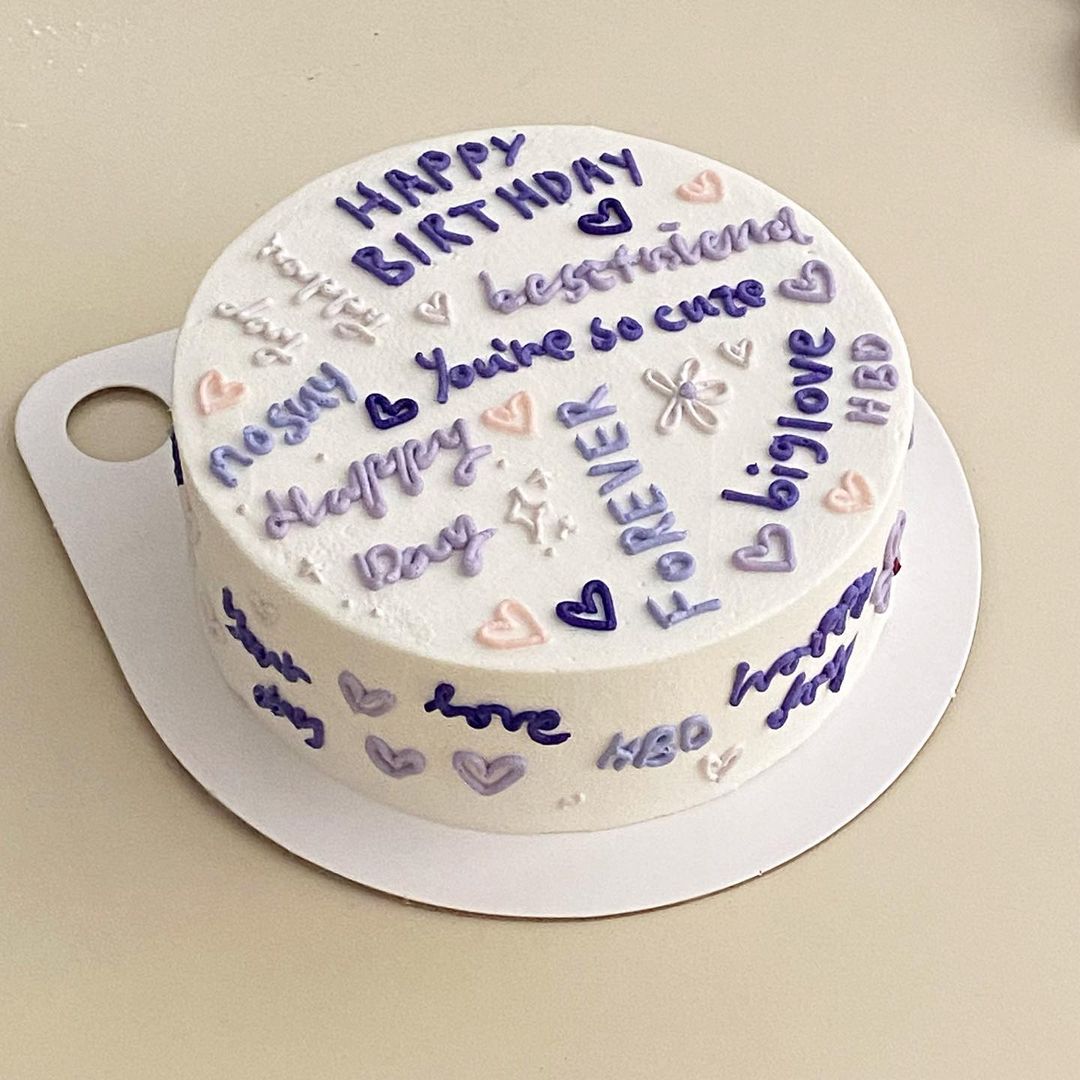 HAPPY
BIRTHDAY
bestfriend
happy
day
you're so cute
noshy
Happy
Day
FOREVER
biglove
HBD
love
HBD
day